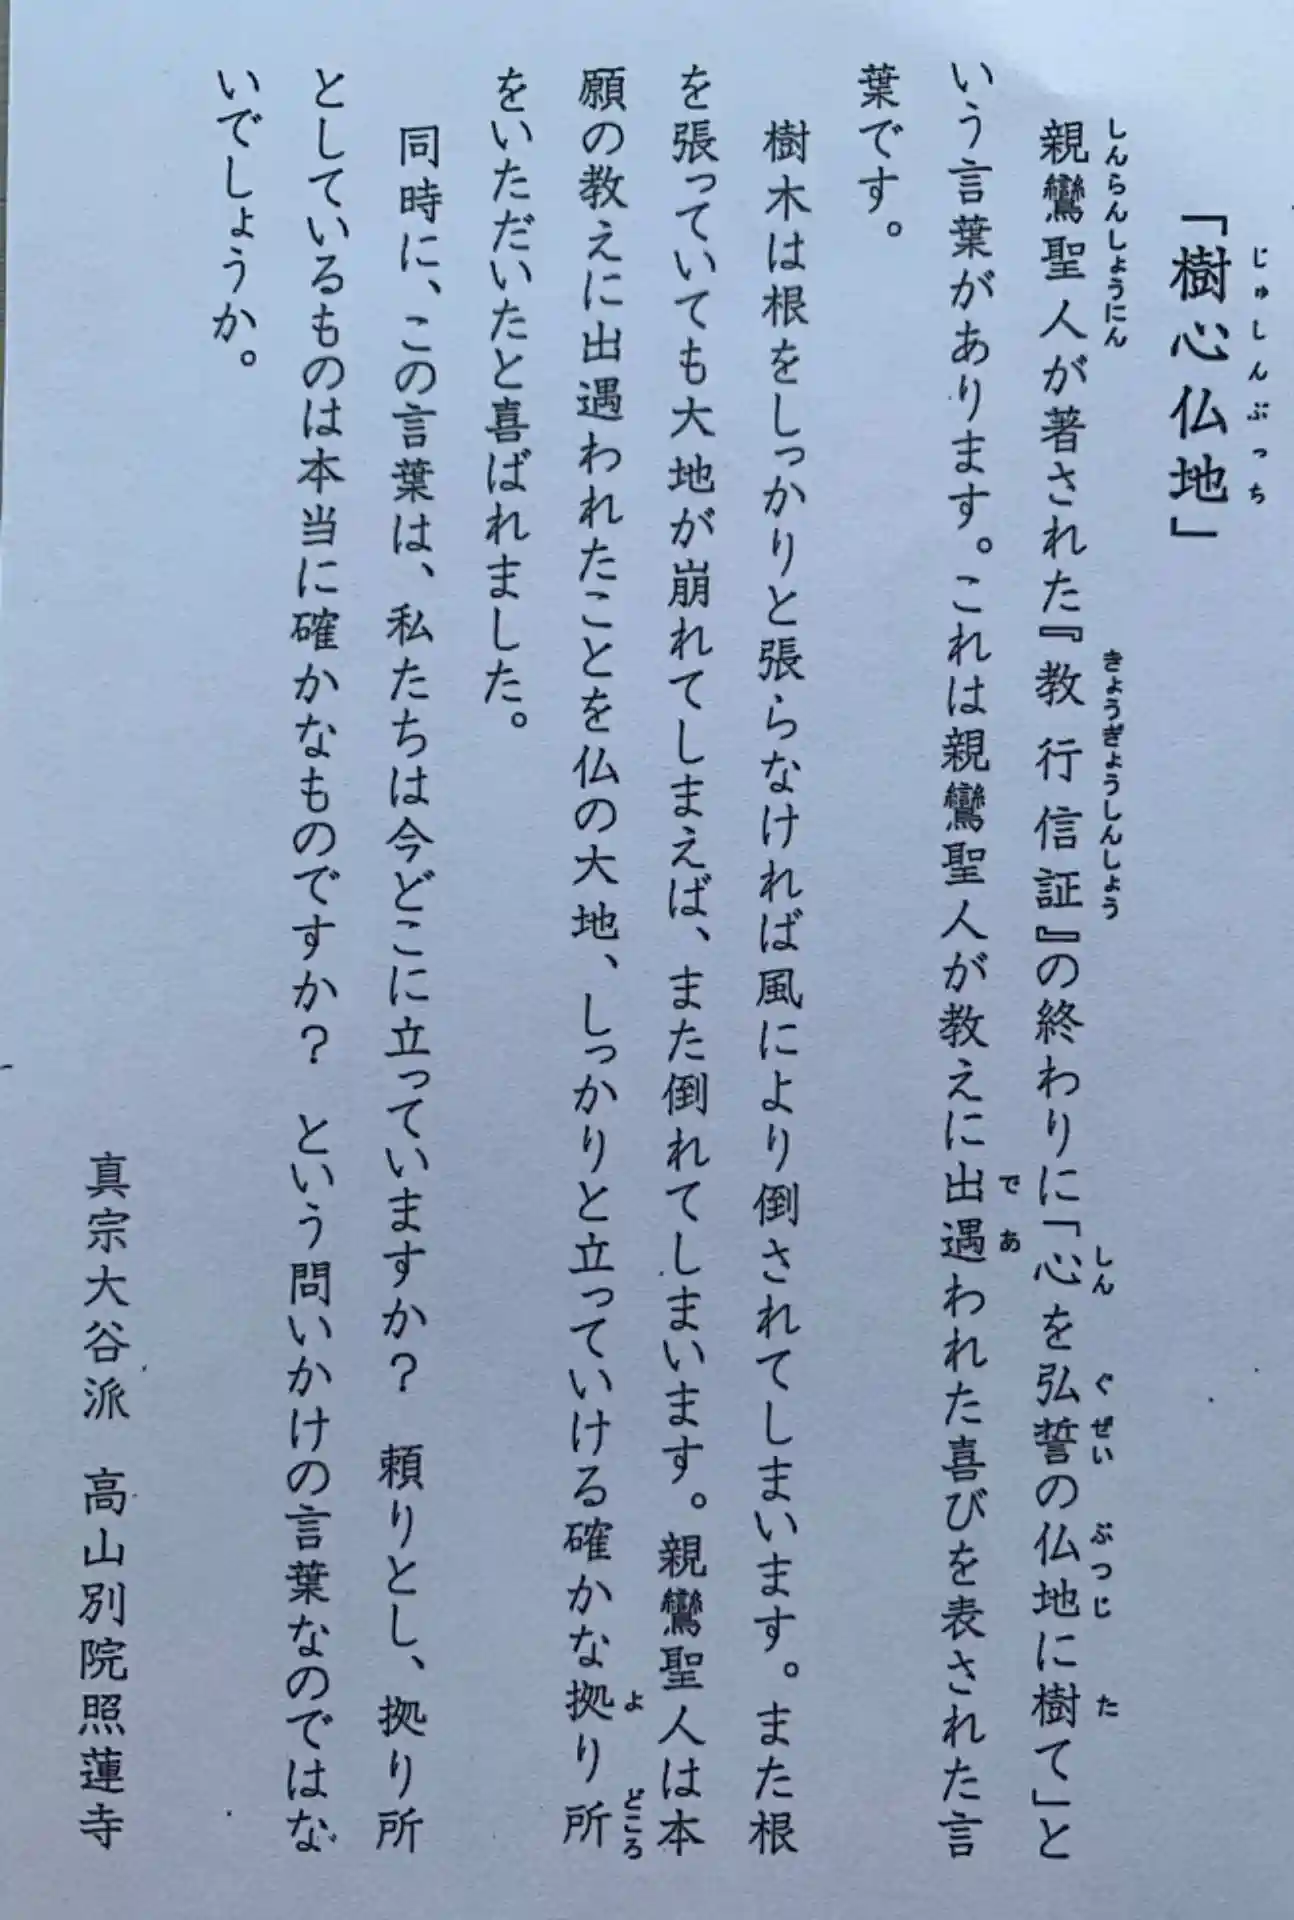 「樹心仏地」
じゅしんぶっち
親鸞聖人が著された『教行信証』の終わりに「心を弘誓の仏地に樹て」と
しんらんしょうにん きょうぎょうしんしょう しん ぐぜい ぶつじ た
いう言葉があります。これは親鸞聖人が教えに出遇われた喜びを表された言
であ
葉です。
樹木は根をしっかりと張らなければ風により倒されてしまいます。また根
を張っていても大地が崩れてしまえば、また倒れてしまいます。親鸞聖人は本
願の教えに出遇われたことを仏の大地、しっかりと立っていける確かな拠り所
よ どころ
をいただいたと喜ばれました。
同時に、この言葉は、私たちは今どこに立っていますか？ 頼りとし、拠り所
としているものは本当に確かなものですか？ という問いかけの言葉なのではな
いでしょうか。
真宗大谷派 高山別院照蓮寺